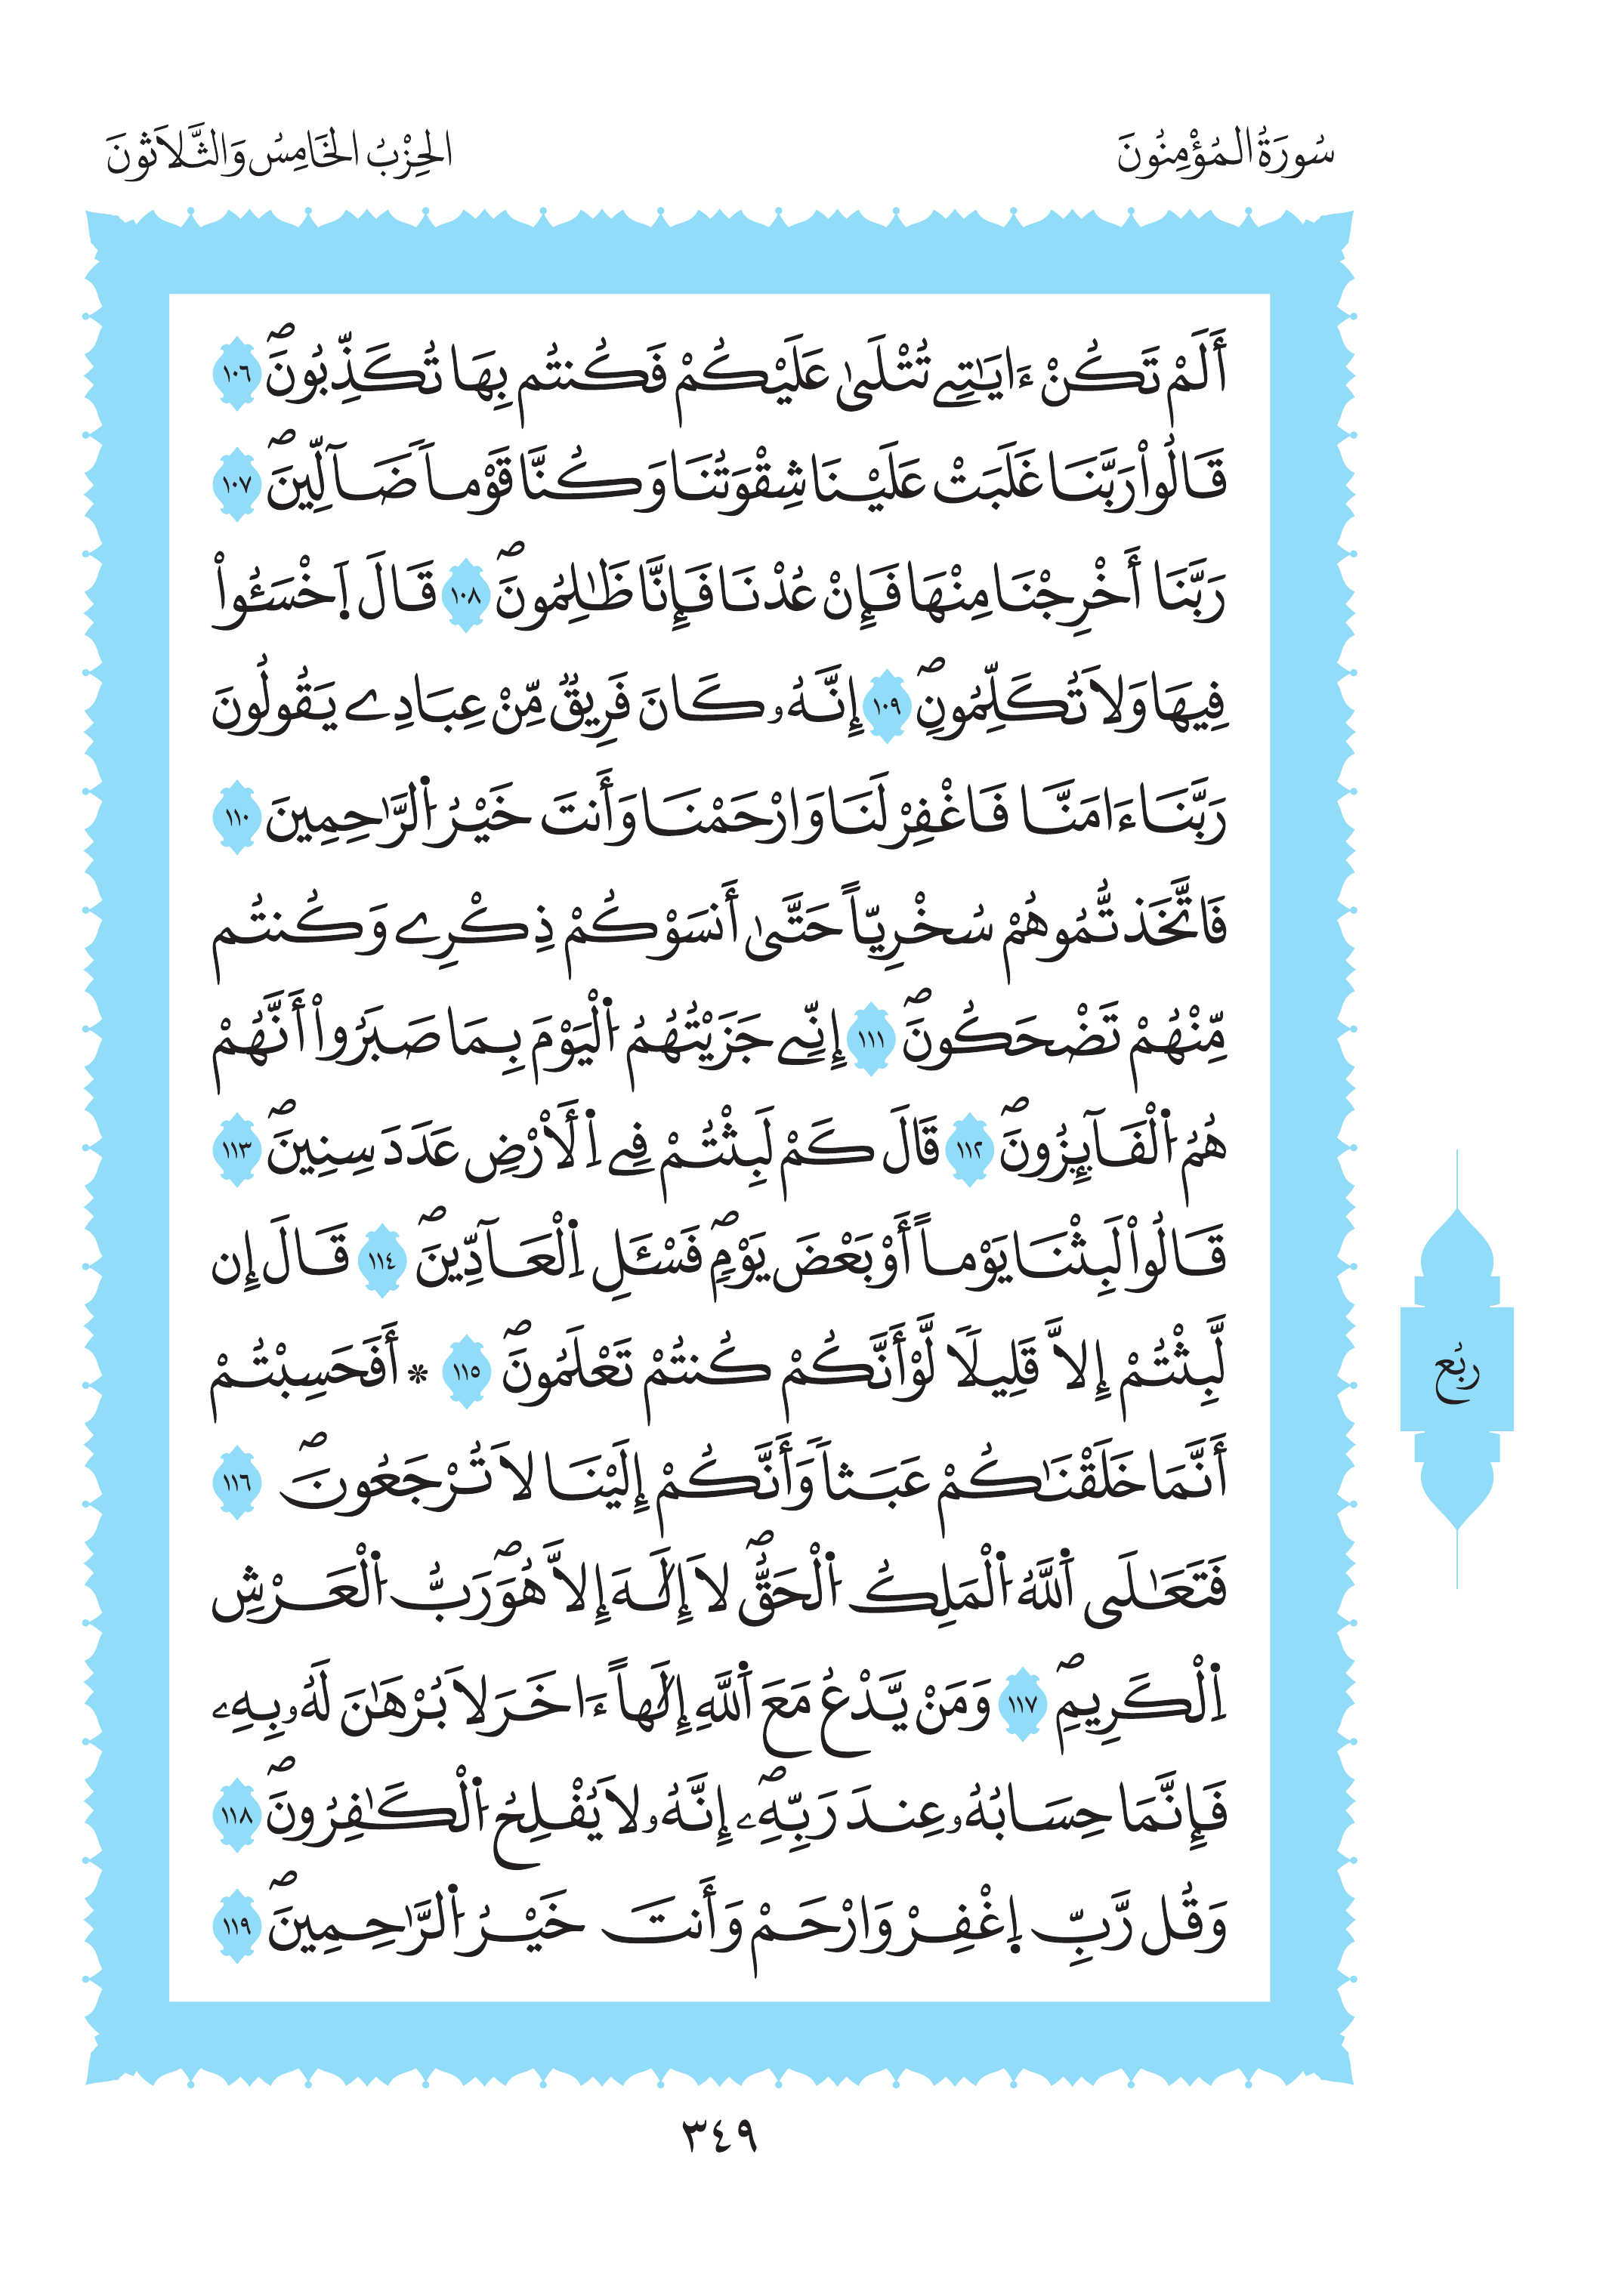 سُورَةُ المُؤْمِنُونَ
الحِزْبُ الخَامِسُ وَالثَّلَاثُونَ
أَلَمْ تَكُنْ ءَايَٰتِے تُتْلَىٰ عَلَيْكُمْ فَكُنتُم بِهَا تُكَذِّبُونَۖ ١٠٦
قَالُواْ رَبَّنَا غَلَبَتْ عَلَيْنَا شِقْوَتُنَا وَكُنَّا قَوْماٗ ضَآلِّينَۖ ١٠٧
رَبَّنَا أَخْرِجْنَا مِنْهَا فَإِنْ عُدْنَا فَإِنَّا ظَٰلِمُونَۖ ١٠٨ قَالَ اَ۪خْسَـُٔواْ
فِيهَا وَلَا تُكَلِّمُونِۖ ١٠٩ إِنَّهُۥ كَانَ فَرِيقٞ مِّنْ عِبَادِے يَقُولُونَ
رَبَّنَا ءَامَنَّا فَاغْفِرْ لَنَا وَارْحَمْنَا وَأَنتَ خَيْرُ اُ۬لرَّٰحِمِينَ ١١٠
فَاتَّخَذتُّمُوهُمْ سُخْرِيّاً حَتَّىٰ أَنسَوْكُمْ ذِكْرِے وَكُنتُم
مِّنْهُمْ تَضْحَكُونَۖ ١١١ إِنِّے جَزَيْتُهُمُ اُ۬لْيَوْمَ بِمَا صَبَرُواْ أَنَّهُمْ
هُمُ اُ۬لْفَآئِزُونَۖ ١١٢ قَالَ كَمْ لَبِثْتُمْ فِے اِ۬لَارْضِ عَدَدَ سِنِينَۖ ١١٣
قَالُواْ لَبِثْنَا يَوْماً أَوْ بَعْضَ يَوْمٖۖ فَسْـَٔلِ اِ۬لْعَآدِّينَۖ ١١٤ قَالَ إِن
لَّبِثْتُمْ إِلَّا قَلِيلاٗ لَّوْ أَنَّكُمْ كُنتُمْ تَعْلَمُونَۖ ١١٥ * أَفَحَسِبْتُمْ
أَنَّمَا خَلَقْنَٰكُمْ عَبَثاٗ وَأَنَّكُمْ إِلَيْنَا لَا تُرْجَعُونَۖ ١١٦
فَتَعَٰلَى اَ۬للَّهُ اُ۬لْمَلِكُ اُ۬لْحَقُّۖ لَا إِلَٰهَ إِلَّا هُوَۖ رَبُّ اُ۬لْعَرْشِ
اِ۬لْكَرِيمِۖ ١١٧ وَمَنْ يَّدْعُ مَعَ اَ۬للَّهِ إِلَٰهاً ءَاخَرَ لَا بُرْهَٰنَ لَهُۥ بِهِۦ
فَإِنَّمَا حِسَابُهُۥ عِندَ رَبِّهِۦۖ إِنَّهُۥ لَا يُفْلِحُ اُ۬لْكَٰفِرُونَۖ ١١٨
وَقُل رَّبِّ اِ۪غْفِرْ وَارْحَمْ وَأَنتَ خَيْرُ اُ۬لرَّٰحِمِينَۖ ١١٩
رُبُع
٣٤٩